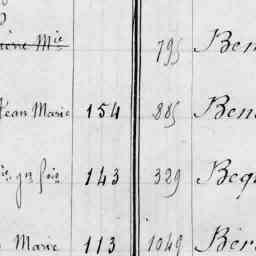 Mie 795 Ben
Jean Marie 154 885 Ben
143 329 Beq
Marie 113 1049 Ber